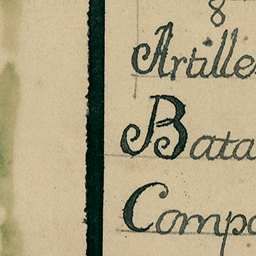 8
Artille
Bata
Compa